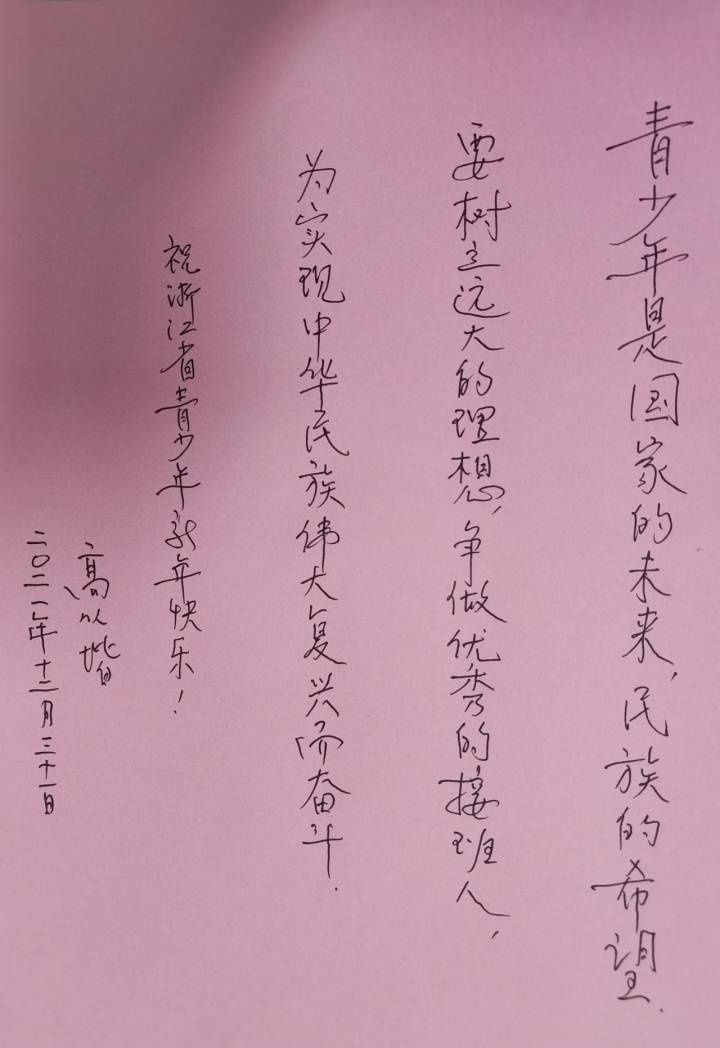 青少年是国家的未来，民族的希望.
要树立远大的理想，争做优秀的接班人，
为实现中华民族伟大复兴而奋斗.
祝浙江省青少年新年快乐！
高以
二〇二一年十二月三十一日